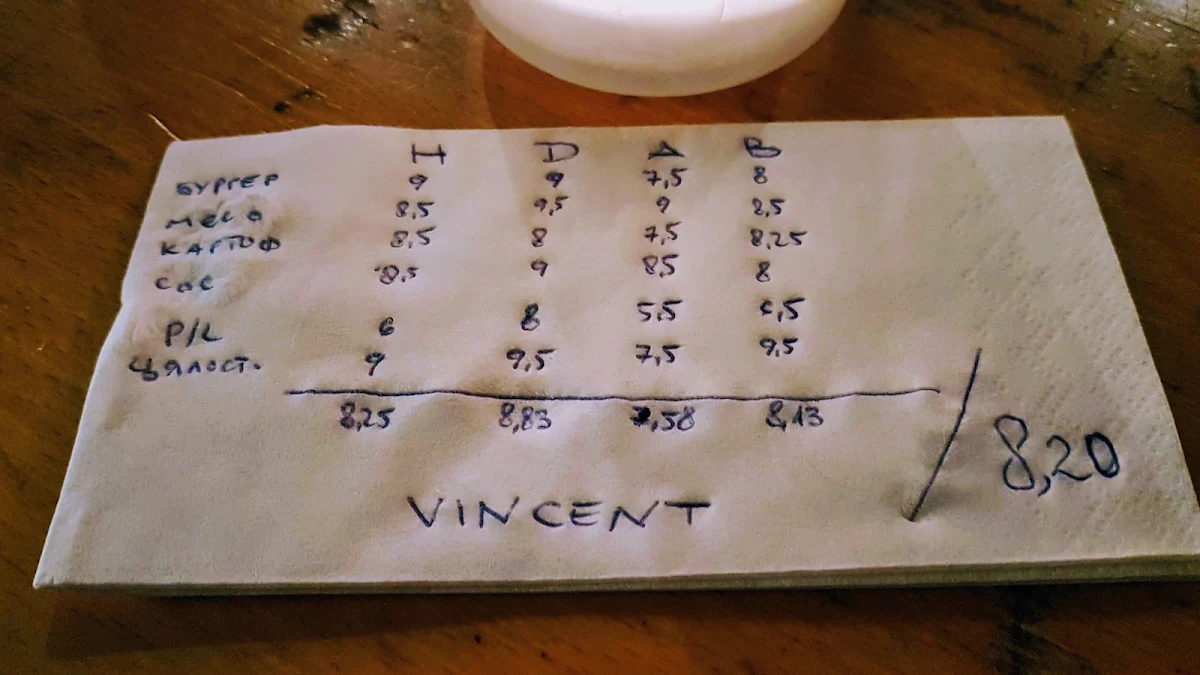 I D A B
БУРГЕР 9 9 7,5 8
МЕСО 8,5 9,5 9 8,5
КАРТОФ 8,5 8 7,5 8,25
СОС 8,5 9 8,5 8
P/L 6 8 5,5 6,5
ЦЯЛОСТ. 9 9,5 7,5 9,5
8,25 8,83 7,58 8,13
/ 8,20
VINCENT